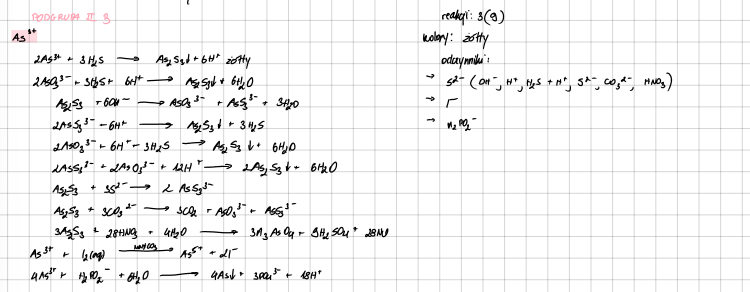 PODGRUPA II B
As³⁺
2As³⁺ + 3H₂S → As₂S₃↓ + 6H⁺ żółty
2AsO₃³⁻ + 3H₂S + 6H⁺ → As₂S₃↓ + 6H₂O
As₂S₃ + 6OH⁻ → AsO₃³⁻ + AsS₃³⁻ + 3H₂O
2AsS₃³⁻ + 6H⁺ → As₂S₃↓ + 3H₂S
2AsO₃³⁻ + 6H⁺ + 3H₂S → As₂S₃↓ + 6H₂O
2AsS₃³⁻ + 2AsO₃³⁻ + 12H⁺ → 2As₂S₃↓ + 6H₂O
As₂S₃ + 3S²⁻ → 2AsS₃³⁻
As₂S₃ + 3CO₃²⁻ → 3CO₂ + AsO₃³⁻ + AsS₃³⁻
3As₂S₃ + 28HNO₃ + 4H₂O → H₃AsO₄ + 9H₂SO₄ + 28NO
As³⁺ + I₂(aq) → As⁵⁺ + 2I⁻
4As³⁺ + H₂PO₂⁻ + 6H₂O → 4As↓ + 3PO₄³⁻ + 18H⁺
reakcji: 3(9)
kolory: żółty
odczynniki:
→ S²⁻ (OH⁻, H⁺, H₂S + H⁺, S²⁻, CO₃²⁻, HNO₃)
→ I⁻
→ H₂PO₂⁻